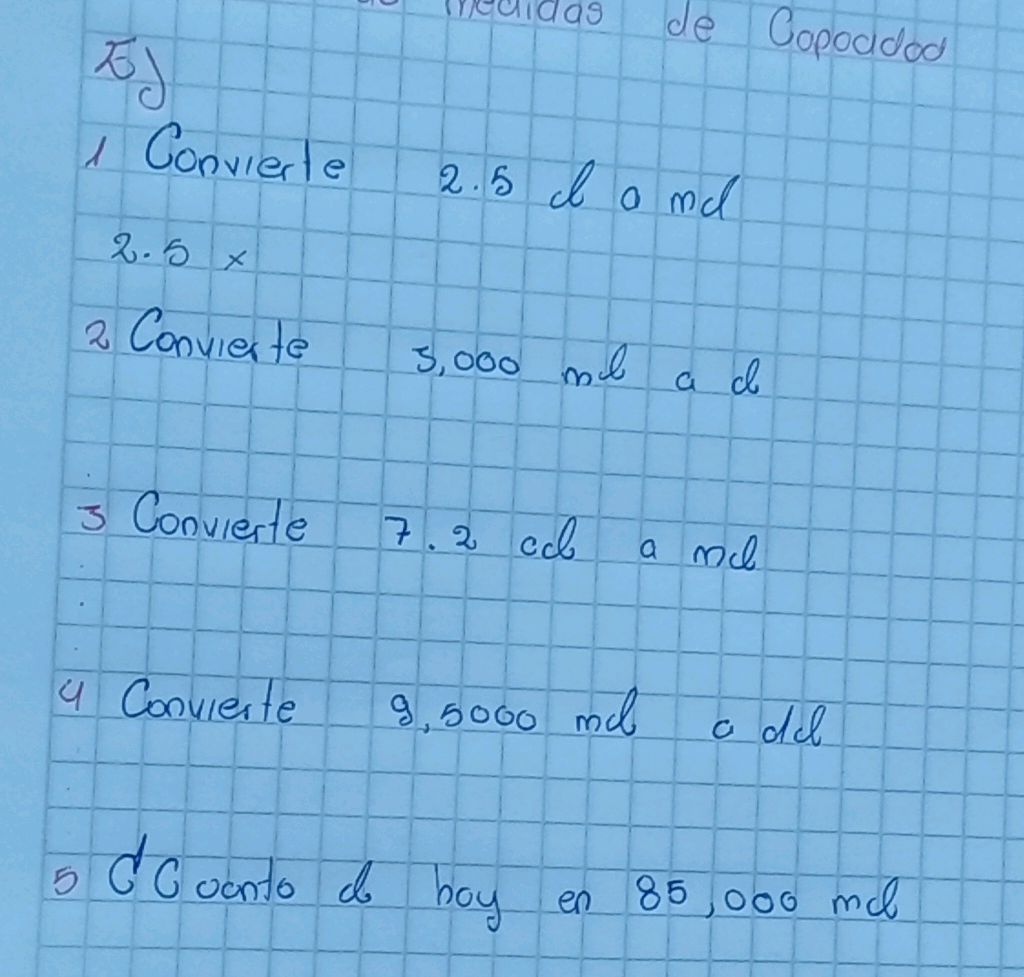 medidas de Capacidad
E)
1 Convierte 2.5 l a ml
2.5 x
2 Convierte 3,000 ml a l
3 Convierte 7.2 cl a ml
4 Convierte 9,5000 ml a dl
5 ¿Cuanto l hay en 85,000 ml